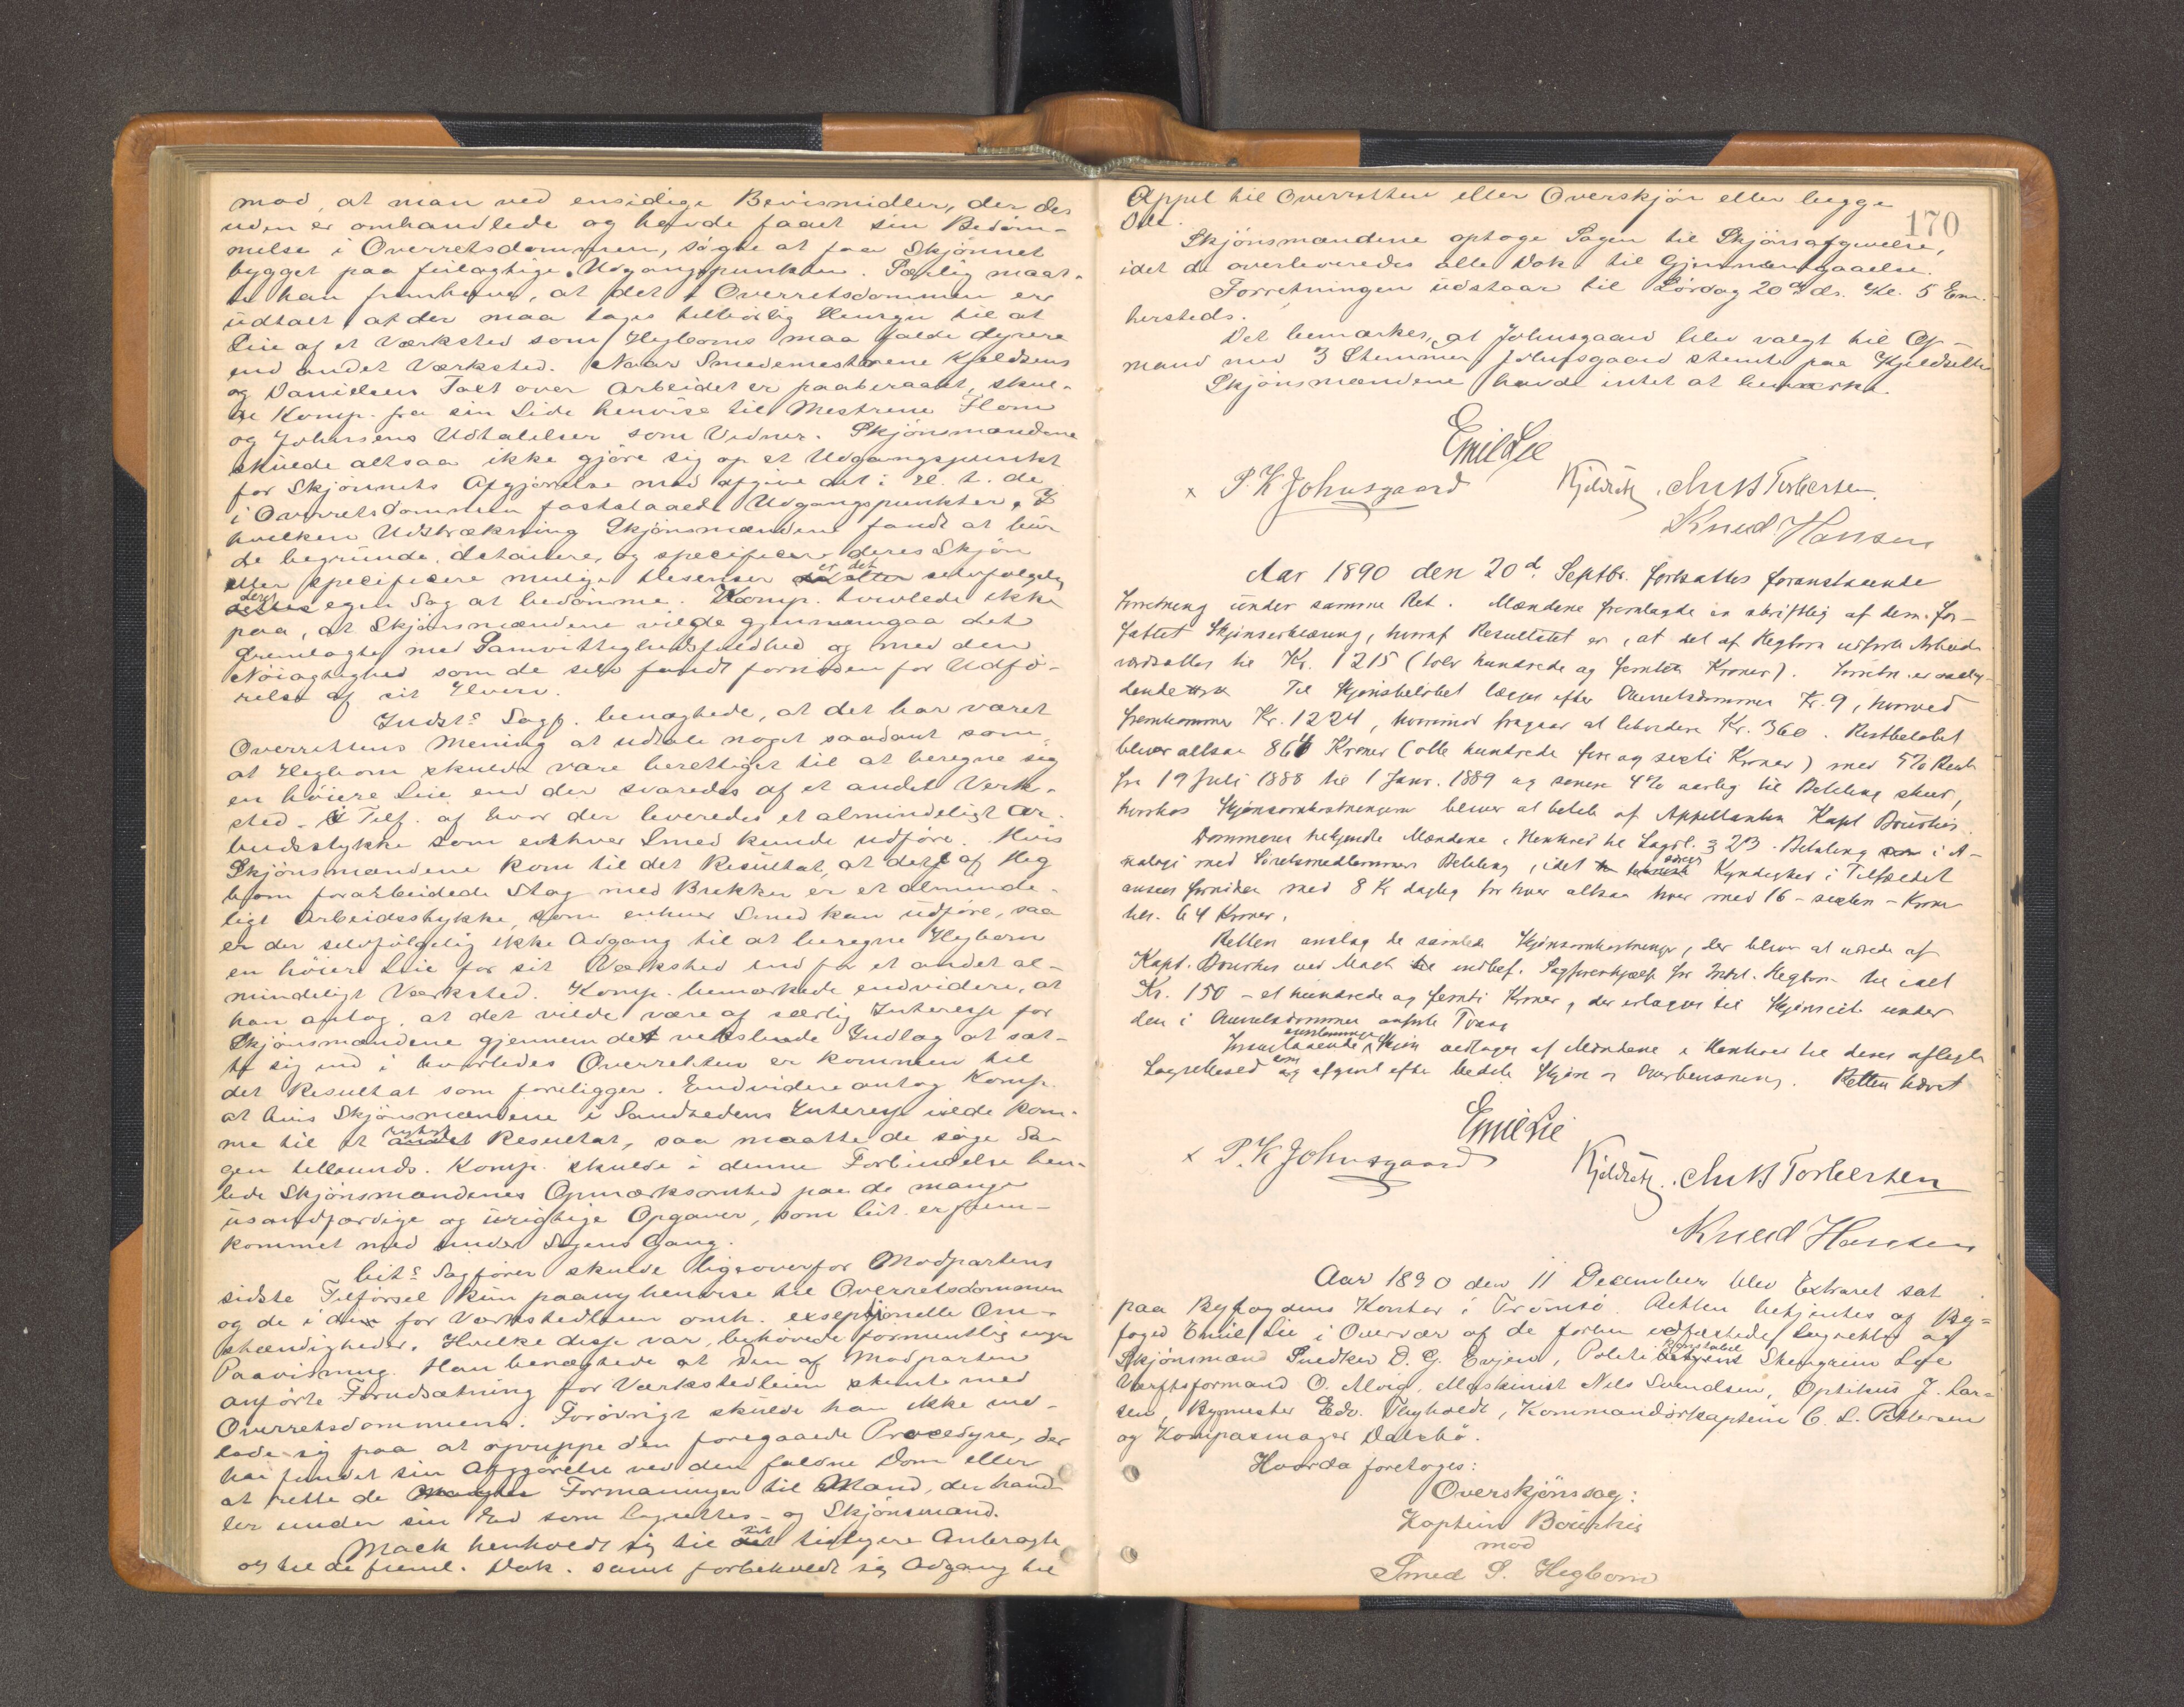 mod, at man ved ensidige Bevismidler, der des
uden er omhandlede og havde faaet sin Bedöm-
melse i Overretsdommen, sögte at faa Skjönnet
bygget paa feilagtige Udgangspunkter. Særlig maat-
te han fremhæve, at det i Overretsdommen er
udtalt at der maa tages tilbörlig Hensyn til at
Leie af et Værksted som Hegboms maa falde dyrere
end andet Værksted. Naar Smedemestrene Kjeldsens
og Danielsens Taxt over Arbeidet er paaberaabt, skul-
de Komp. fra sin Side henvise til Mestrene Flom
og Johnsens Udtalelser som Vidner. Skjönsmændene
skulde altsaa ikke gjöre sig op et Udgangspunkt
for Skjönnets Afgjörelse med afgive det i H. t. de
i Overretsdommen fastslaaede Udgangspunkter. I
hvilken Udstrækning Skjönsmændene fandt at bur
de begrunde, detailere, og specificere deres Skjön
eller specificere mulige Desenser er det selvfölgelig
deres egen Sag at bedömme. Komp. tvivlede ikke
paa, at Skjönsmændene vilde gjennemgaa det
fremlagte med Samvittighedsfuldhed og med den
Nöiagtighed som de selv fandt fornöden for Udfö-
relse af sit Hverv.
Indst.s Sagf. benægtede, at det har været
Overrettens Mening at udtale noget saadant som
at Hegbom skulde være berettiget til at beregne sig
en höiere Leie end der svaredes af et andet Verk-
sted - i Tilf. af hvor der leveredes et almindeligt Ar-
beidsstykke som enhver Smed kunde udföre. Hvis
Skjönsmændene kom til det Resultat, at det af Heg
bom forarbeidede Stag med Brekker er et alminde-
ligt Arbeidsstykke, som enhver Smed kan udföre, saa
er der selvfölgelig ikke Adgang til at beregne Hegbom
en höiere Leie for sit Værksted end for et andet al-
mindeligt Værksted. Komp. bemærkede endvidere, at
han antog, at det vilde være af særlig Interesse for
Skjönsmændene gjennem det vekslende Indlæg at sæt-
te sig ind i hvorledes Overretten er kommen til
det Resultat som foreligger. Endvidere antog Komp.
at hvis Skjönsmændene i Sandhedens Interesse vilde kom-
me til et rigtigt Resultat, saa maatte de söge Sa-
gen tilbunds. Komp. skulde i denne Forbindelse hen-
lede Skjönsmændenes Opmærksomhed paa de mange
usandfærdige og urigtige Opgaver, som Cit. er frem-
kommet med under Sagens Gang.
Cit.s Sagförer skulde ligeoverfor Modpartens
sidste Tilförsel kun paany henvise til Overretsdommen
og de i den for Værkstedleien omh. exseptionelle Om-
stændigheder. Hvilke disse var, behövede formentlig ingen
Paavisning. Han benægtede at den af Modparten
anförte Forudsætning for Værkstedleien stemte med
Overretsdommens. Forövrigt skulde han ikke ind-
lade sig paa at oprippe den foregaaede Procedyre, der
har fundet sin Afgjörelse ved den faldne Dom eller
at rette de Formaninger til Mænd, der hand-
ler under sin Ed som Lagrettes- og Skjönsmænd.
Mack henholdt sig til sit tidligere Anbragte
og til de freml. Dok. samt forbeholdt sig Adgang til
170
Appel til Overretten eller Overskjön eller begge
Dele.
Skjönsmændene optoge Sagen til Skjönsafgivelse,
idet de overleveredes alle Dok. til Gjennemgaaelse.
Forretningen udstaar til Lördag 20de ds. Kl. 5 Em.
hersteds.
Det bemærkes, at Johnsgaard blev valgt til Op-
mand med 3 Stemmer, Johnsgaard stemte paa Kjeldseth
Skjönsmændene havde intet at bemærke.
Emil Lie
x P. K Johnsgaard Kjeldseth. Chr H Torbersen.
Knud Hansen
Aar 1890 den 20d. Septbr. fortsattes foranstaaende
Forretning under samme Ret. Mændene fremlagde en skriftlig af dem for-
fattet Skjönserklæring, hvoraf Resultatet er, at det af Hegbom udförte Arbeide
værdsattes til Kr. 1215 (tolv hundrede og femten Kroner). Forretn. er saaly-
dende Til Skjönsbelöbet lægges efter Overretsdommen Kr. 9, hvorved
fremkommer Kr. 1224, hvorimod fragaar at Kr. 360. Restbelöbet
bliver altsaa 864 Kroner (otte hundrede fire og sexti Kroner) med 5% Rente
fra 19 Juli 1888 til 1 Janr. 1889 og senere 4% aarlig til Betaling skeer,
hvorhos Skjönsomkostningerne bliver at betale af Appellanten Kapt Bourkis.
Dommeren tilkjendte Mændene i Henhold til Lagsl. § 23. Betaling i A-
nalogi med Söretsmedlemmers Betaling, idet særeg Kyndighed i Tilfældet
ansees fornöden med 8 Kr daglig for hver altsaa hver med 16 - sexten - Kroner
tils. 64 Kroner.
Retten anslog de samlede Skjönsomkostninger, der bliver at udrede af
Kapt. Bourkis ved Mack til indbef. Sagförerhjælp for Indst. Hegbom til ialt
Kr. 150 - et hundrede og femti Kroner, der erlægges til Skjönscit. under
den i Overretsdommen anförte Tvang
Foranstaaende Skjön vedtages af Mændene i Henhold til deres aflagte
Lagretteed som afgivet efter bedste Skjön og Overbevisning. Retten hævet
Emil Lie
x P. K Johnsgaard Kjeldseth. Chr H Torbersen
Knud Hansen
Aar 1890 den 11 December blev Extraret sat
paa Byfogdens Kontor i Tromsö. Retten betjentes af By-
foged Emil Lie i Overvær af de forhen edfæstede Lagrettes og
Skjönsmænd Snedker D. G. Evjen, Politikonstabel Steingrim Lie
Værftsformand O. Alvig, Maskinist Nils Svendsen, Optikus J. Lar-
sen, Bygmester Edv. Thyholdt, Kommandörkaptein C. L. Pettersen
og Kompasmager Dalsbö.
Hvorda foretoges:
Overskjönssag:
Kaptein Bourkis
mod
Smed S. Hegbom